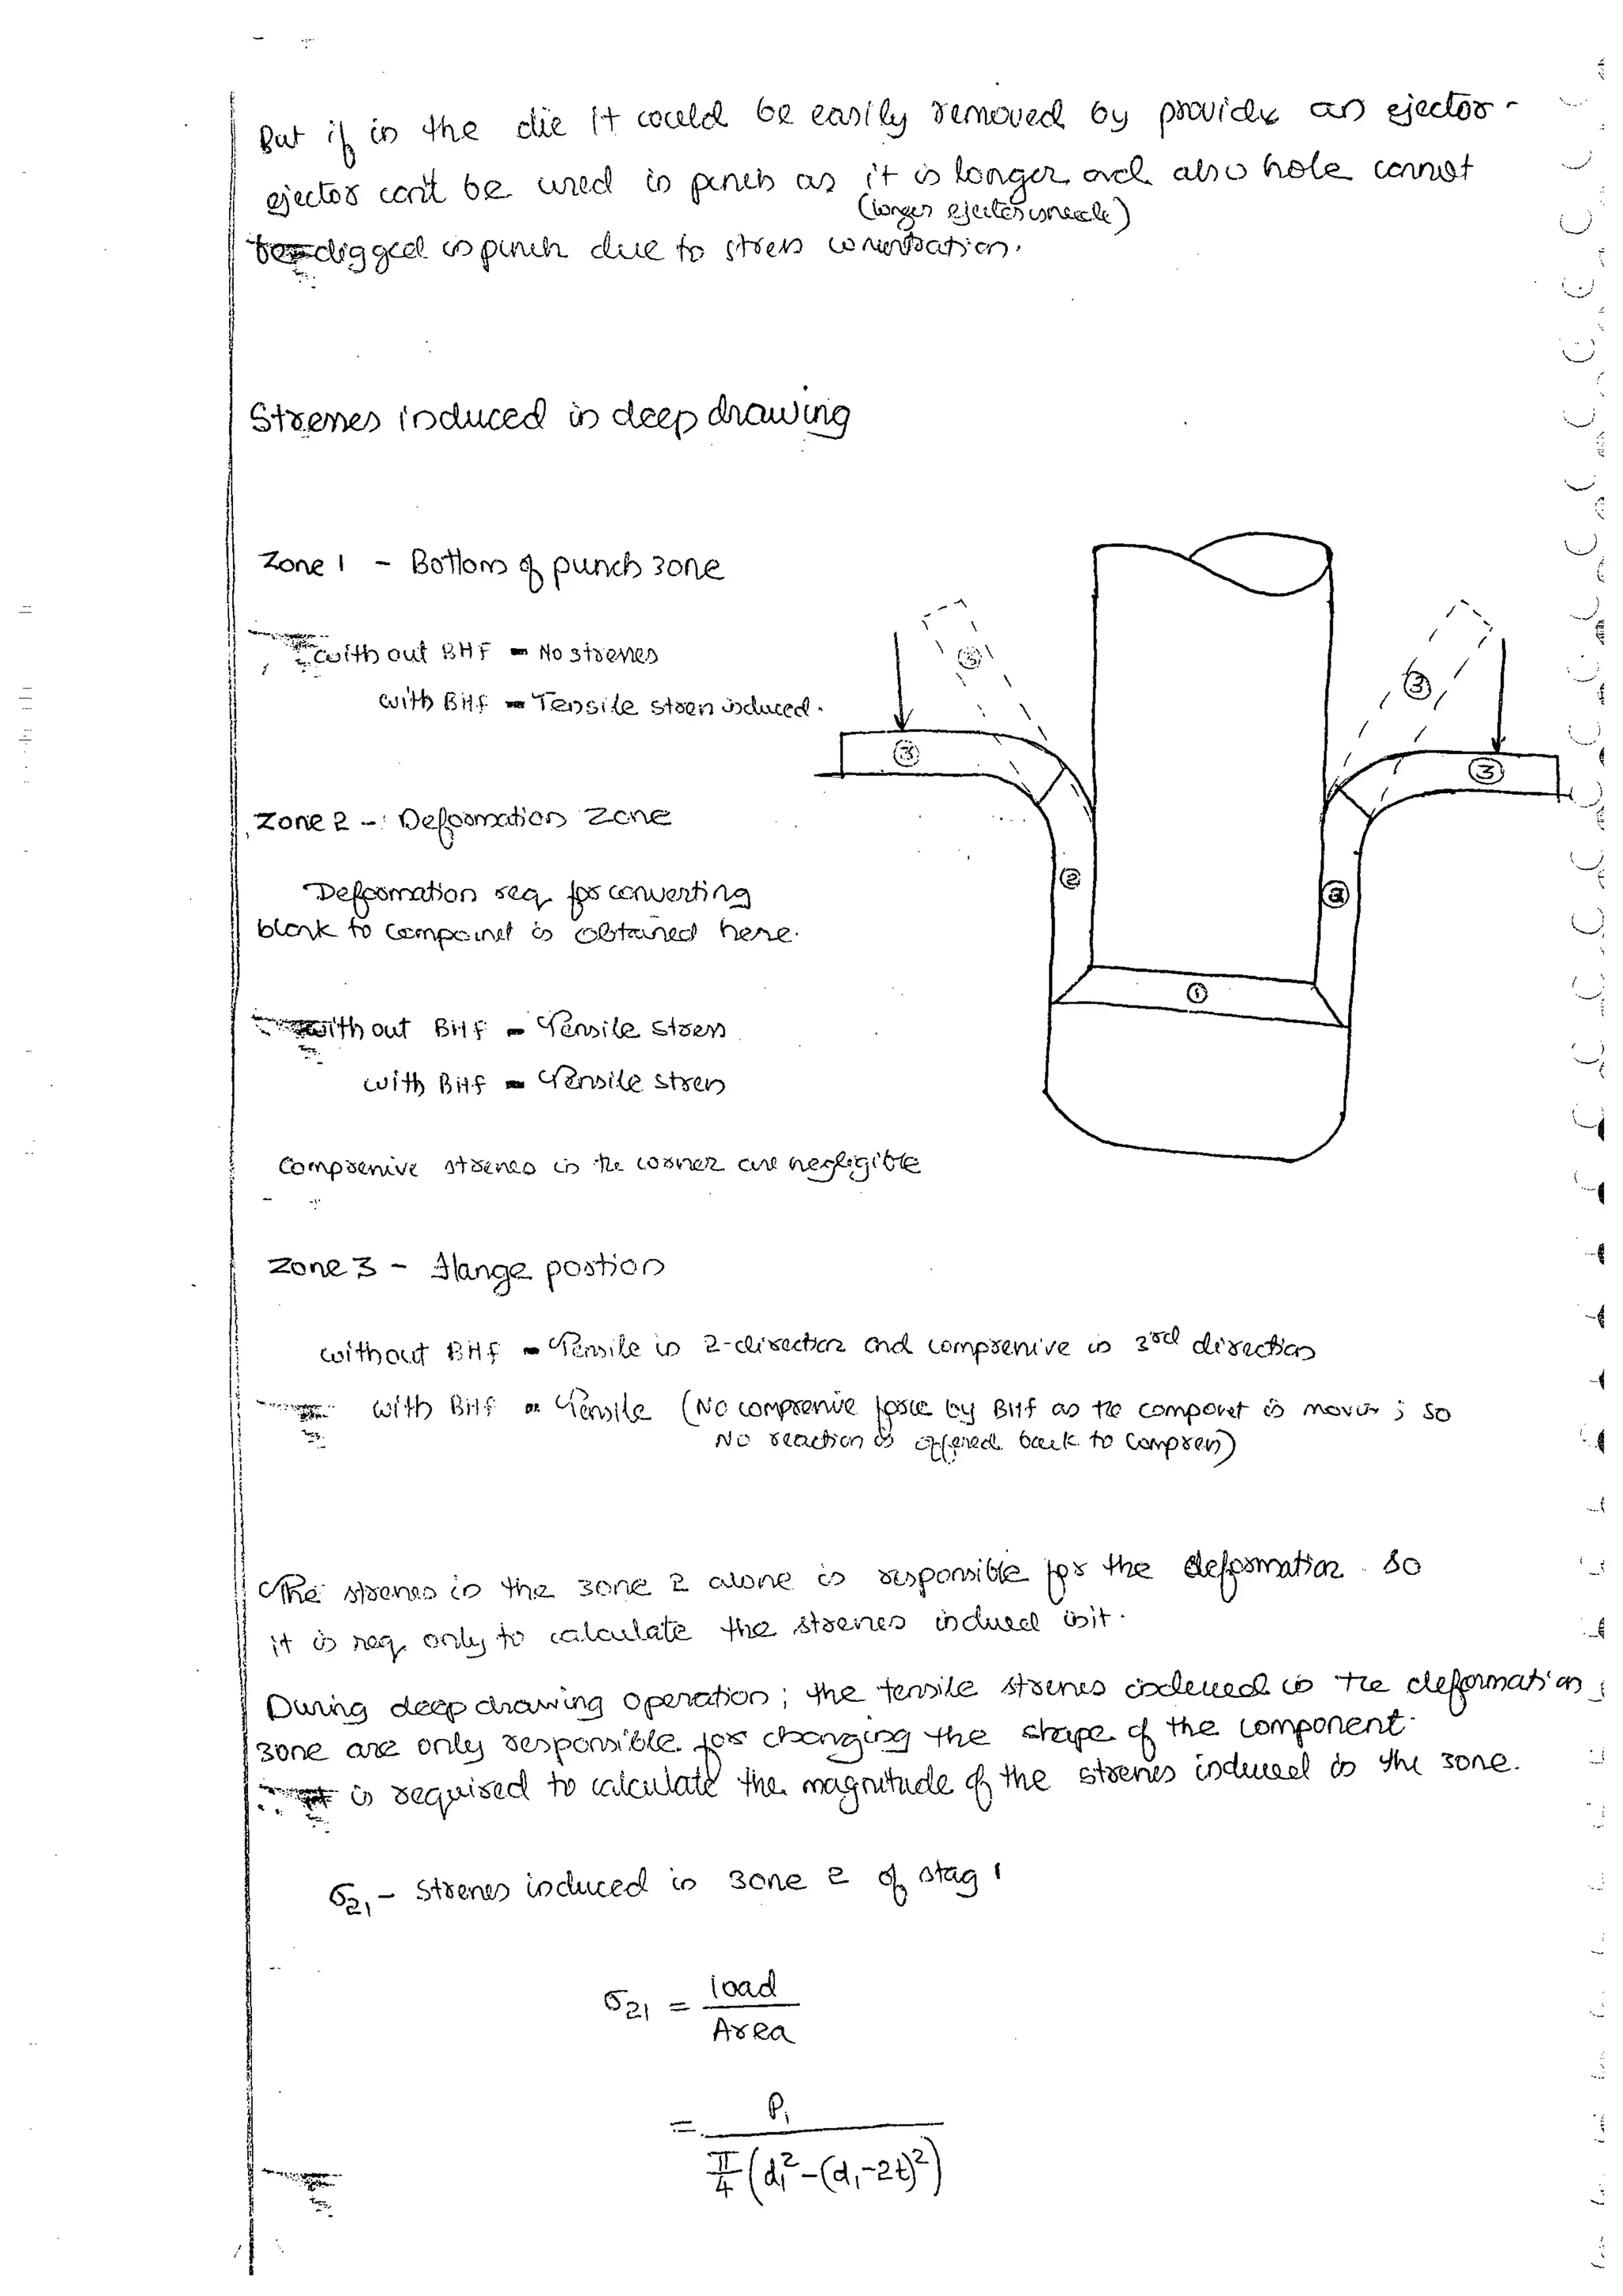 But if in the die it could be easily removed by provide an ejector.
ejector can't be used in punch as it is longer and also hole cannot
(longer ejector is needed)
be digged in punch due to stress concentration.
Stresses induced in deep drawing
Zone 1 - Bottom of punch zone
without BHF - No stresses
with BHF - Tensile stress induced.
③ ③
③ ③
Zone 2 - Deformation Zone
② ②
Deformation req for converting
blank to component is obtained here.
①
without BHF - Tensile stress
with BHF - Tensile stress
Compressive stresses in the corner are negligible
Zone 3 - Flange portion
without BHF - Tensile in 2-direction and compressive in 3rd direction
with BHF - Tensile (No compressive force by BHF as the component is moving ; so
No reaction is offered back to compress)
The stresses in the zone 2 alone is responsible for the deformation. So
it is req only to calculate the stresses induced in it.
During deep drawing operation; the tensile stresses induced in the deformation
zone are only responsible for changing the shape of the component.
It is required to calculate the magnitude of the stresses induced in the zone.
σ21 - stresses induced in zone 2 of stag 1
σ21 = load / Area
= P1 / π/4 (d1² - (d1 - 2t)²)